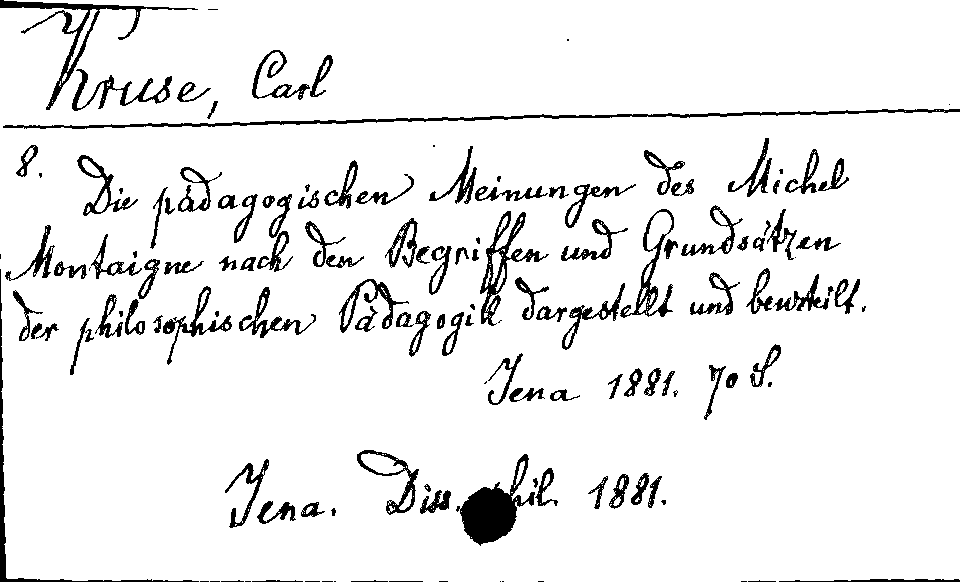 Kruse, Carl
8.
Die pädagogischen Meinungen des Michel
Montaigne nach den Begriffen und Grundsätzen
der philosophischen Pädagogik dargestellt und beurteilt.
Jena 1881. 70 S.
Jena. Diss. phil. 1881.